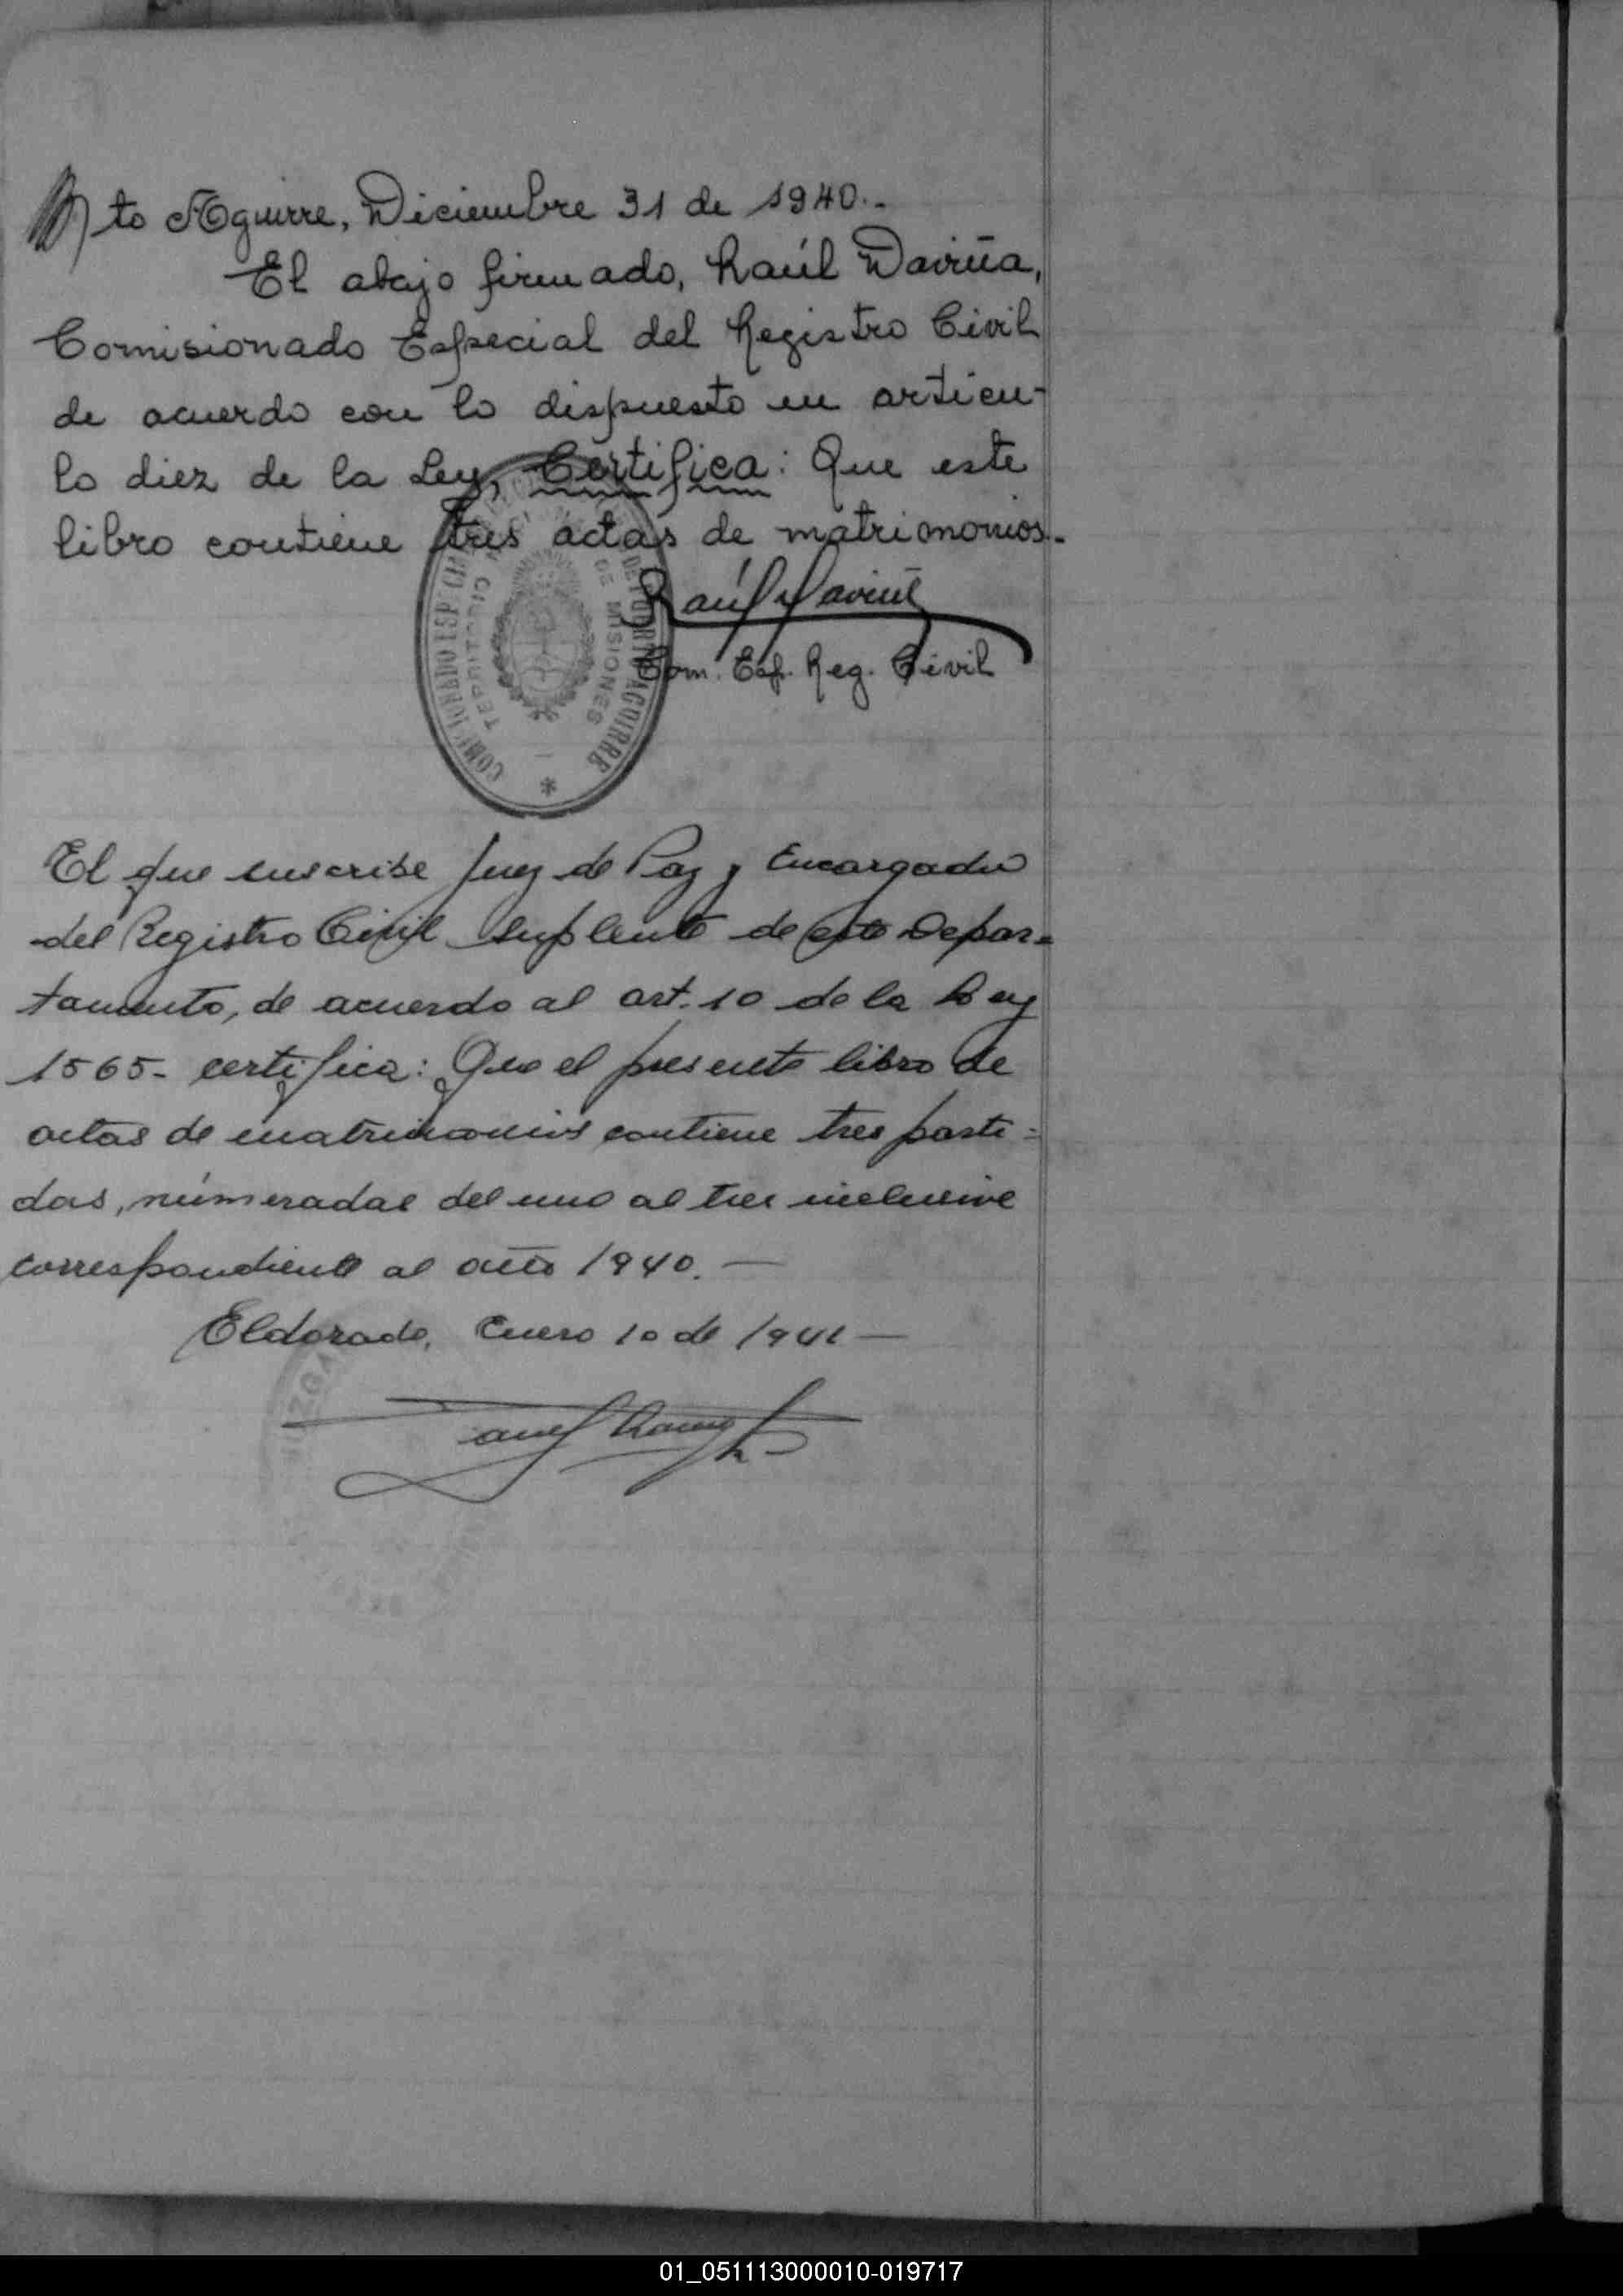 Pto Aguirre, Diciembre 31 de 1940.-
El abajo firmado, Raúl Daviña,
Comisionado Especial del Registro Civil
de acuerdo con lo dispuesto en articu-
lo diez de la Ley, Certifica: Que este
libro contiene tres actas de matrimonios.-
Raúl Daviña
Com. Esp. Reg. Civil
TERRITORIO DE MISIONES
AGUIRRE
El que suscribe Juez de Paz y Encargado
del Registro Civil Suplente de este Depar-
tamento, de acuerdo al art. 10 de la Ley
1565- certifica: Que el presente libro de
actas de matrimonios contiene tres parti-
das, númeradas del uno al tres inclusive
correspondiente al año 1940.-
Eldorado, Enero 10 de 1941-
JUZGA
01_051113000010-019717